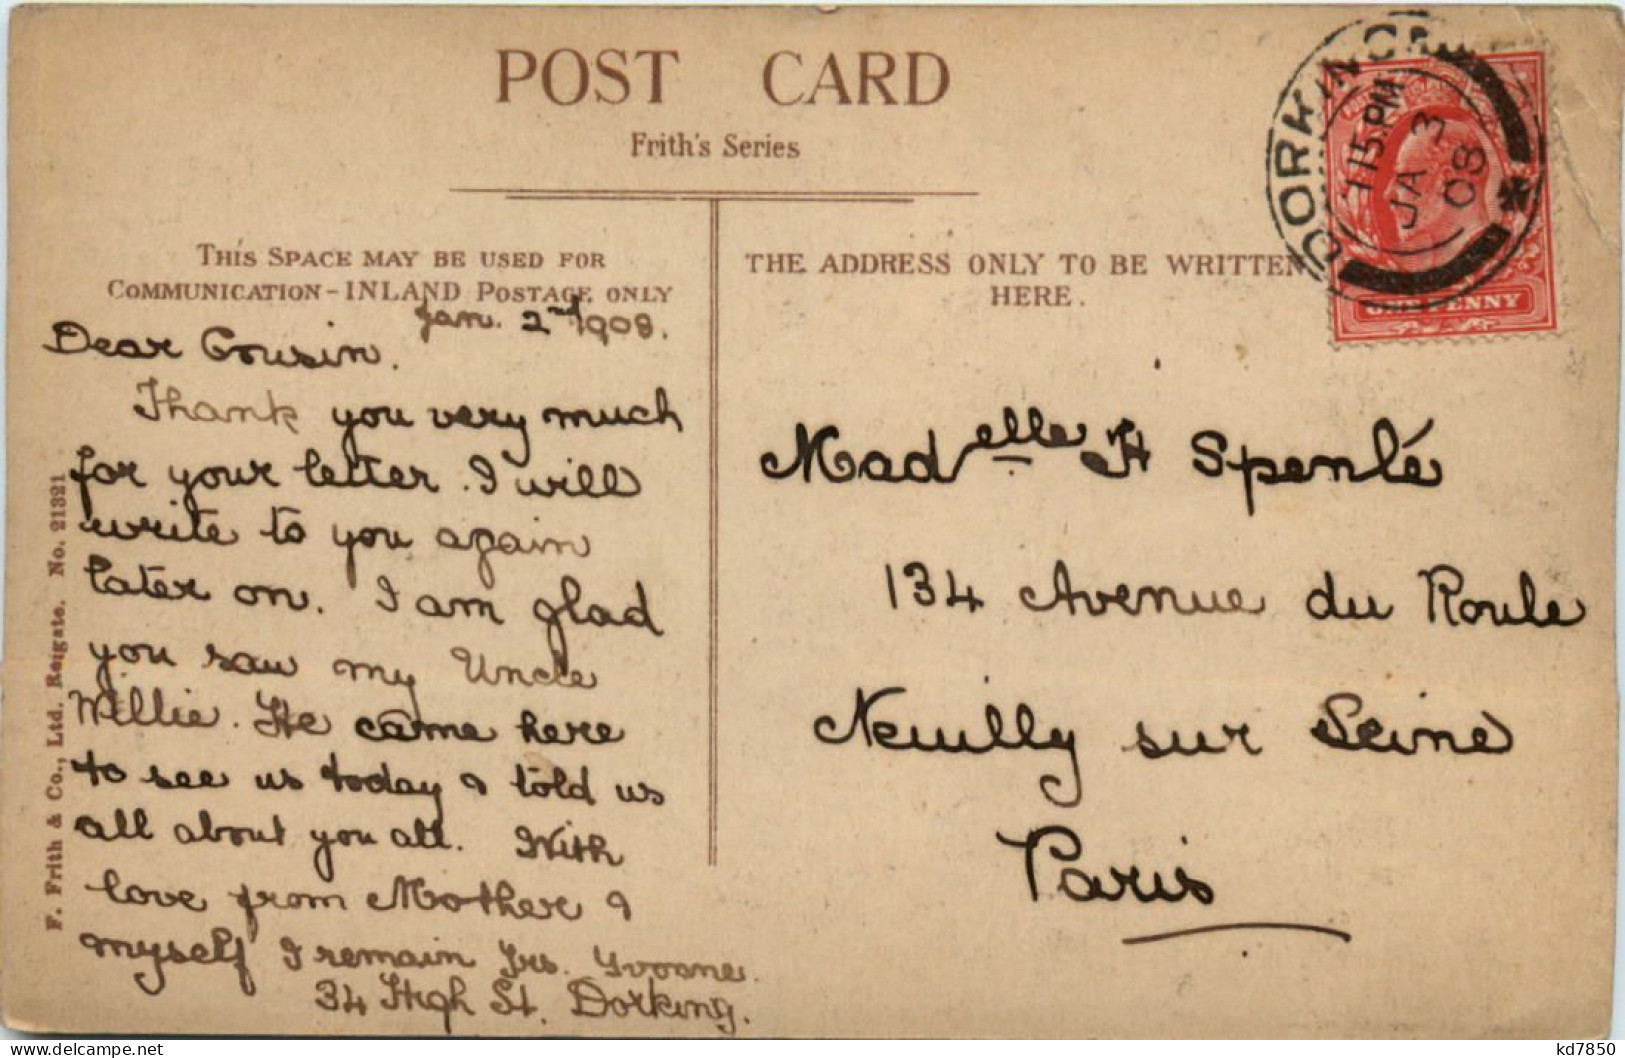 POST CARD
Frith's Series
THIS SPACE MAY BE USED FOR
COMMUNICATION - INLAND POSTAGE ONLY
Jan. 2nd 1908.
Dear Cousin.
Thank you very much
for your letter. I will
write to you again
later on. I am glad
you saw my Uncle
Willie. He came here
to see us today & told us
all about you all. With
love from Mother &
myself I remain Yrs. Yvonne.
34 High St. Dorking.
F. Frith & Co., Ltd. Reigate. No. 21321
THE ADDRESS ONLY TO BE WRITTEN
HERE.
Madelle H Spenlé
134 Avenue du Roule
Neuilly sur Seine
Paris
DORKING
115 PM
JA 3
08
ONE PENNY
delcampe.net
kd7850